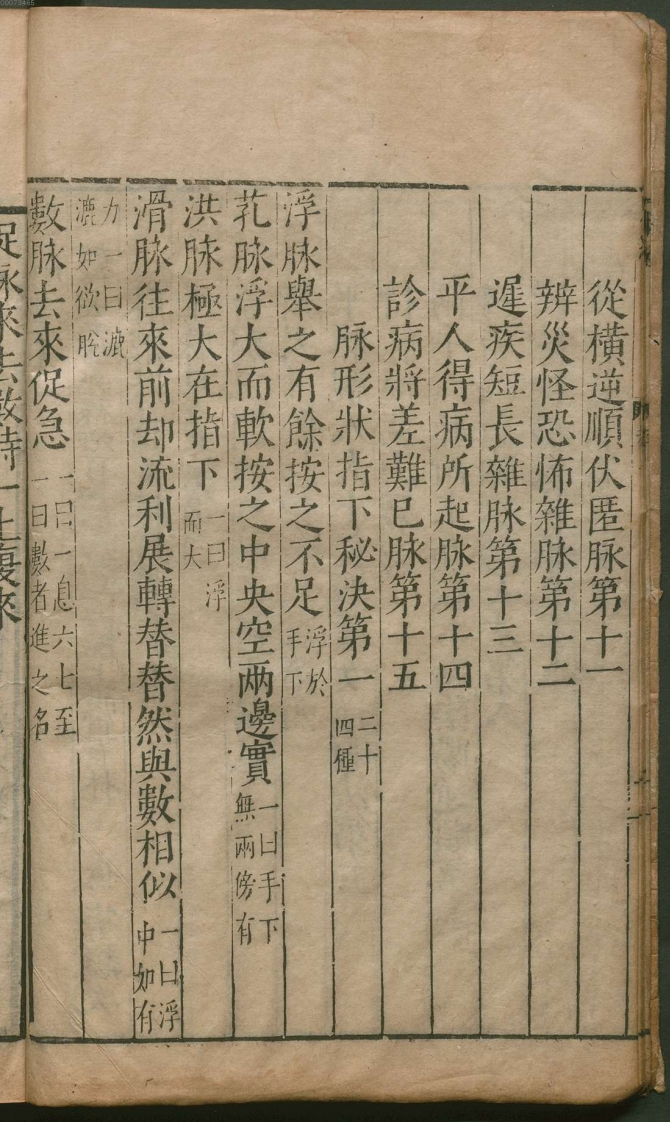 從橫逆順伏匿脉第十一
辨災怪恐怖雜脉第十二
遲疾短長雜脉第十三
平人得病所起脉第十四
診病將差難已脉第十五
脉形狀指下秘決第一二十四種
浮脉舉之有餘按之不足浮於手下
芤脉浮大而軟按之中央空兩邊實一曰手下無兩傍有
洪脉極大在指下一曰浮而大
滑脉往來前却流利展轉替替然與數相似一曰浮中如有
力一曰漉漉如欲脫
數脉去來促急一曰一息六七至一曰數者進之名
促脉來去數時一止復來
00073465